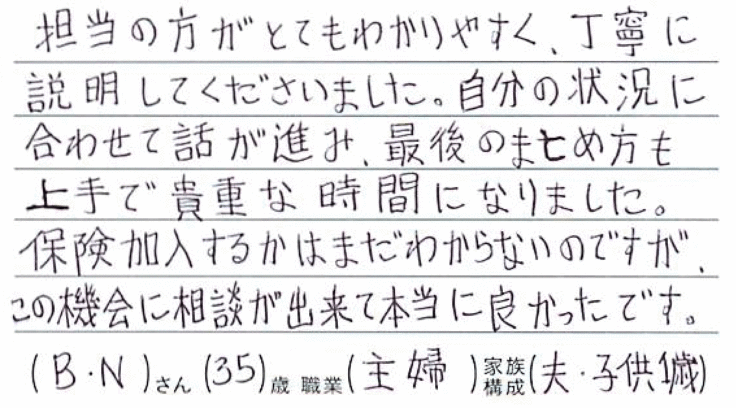 担当の方がとてもわかりやすく、丁寧に
説明してくださいました。自分の状況に
合わせて話が進み、最後のまとめ方も
上手で貴重な時間になりました。
保険加入するかはまだわからないのですが、
この機会に相談が出来て本当に良かったです。
(B・N)さん(35)歳 職業(主婦)家族構成(夫・子供1歳)